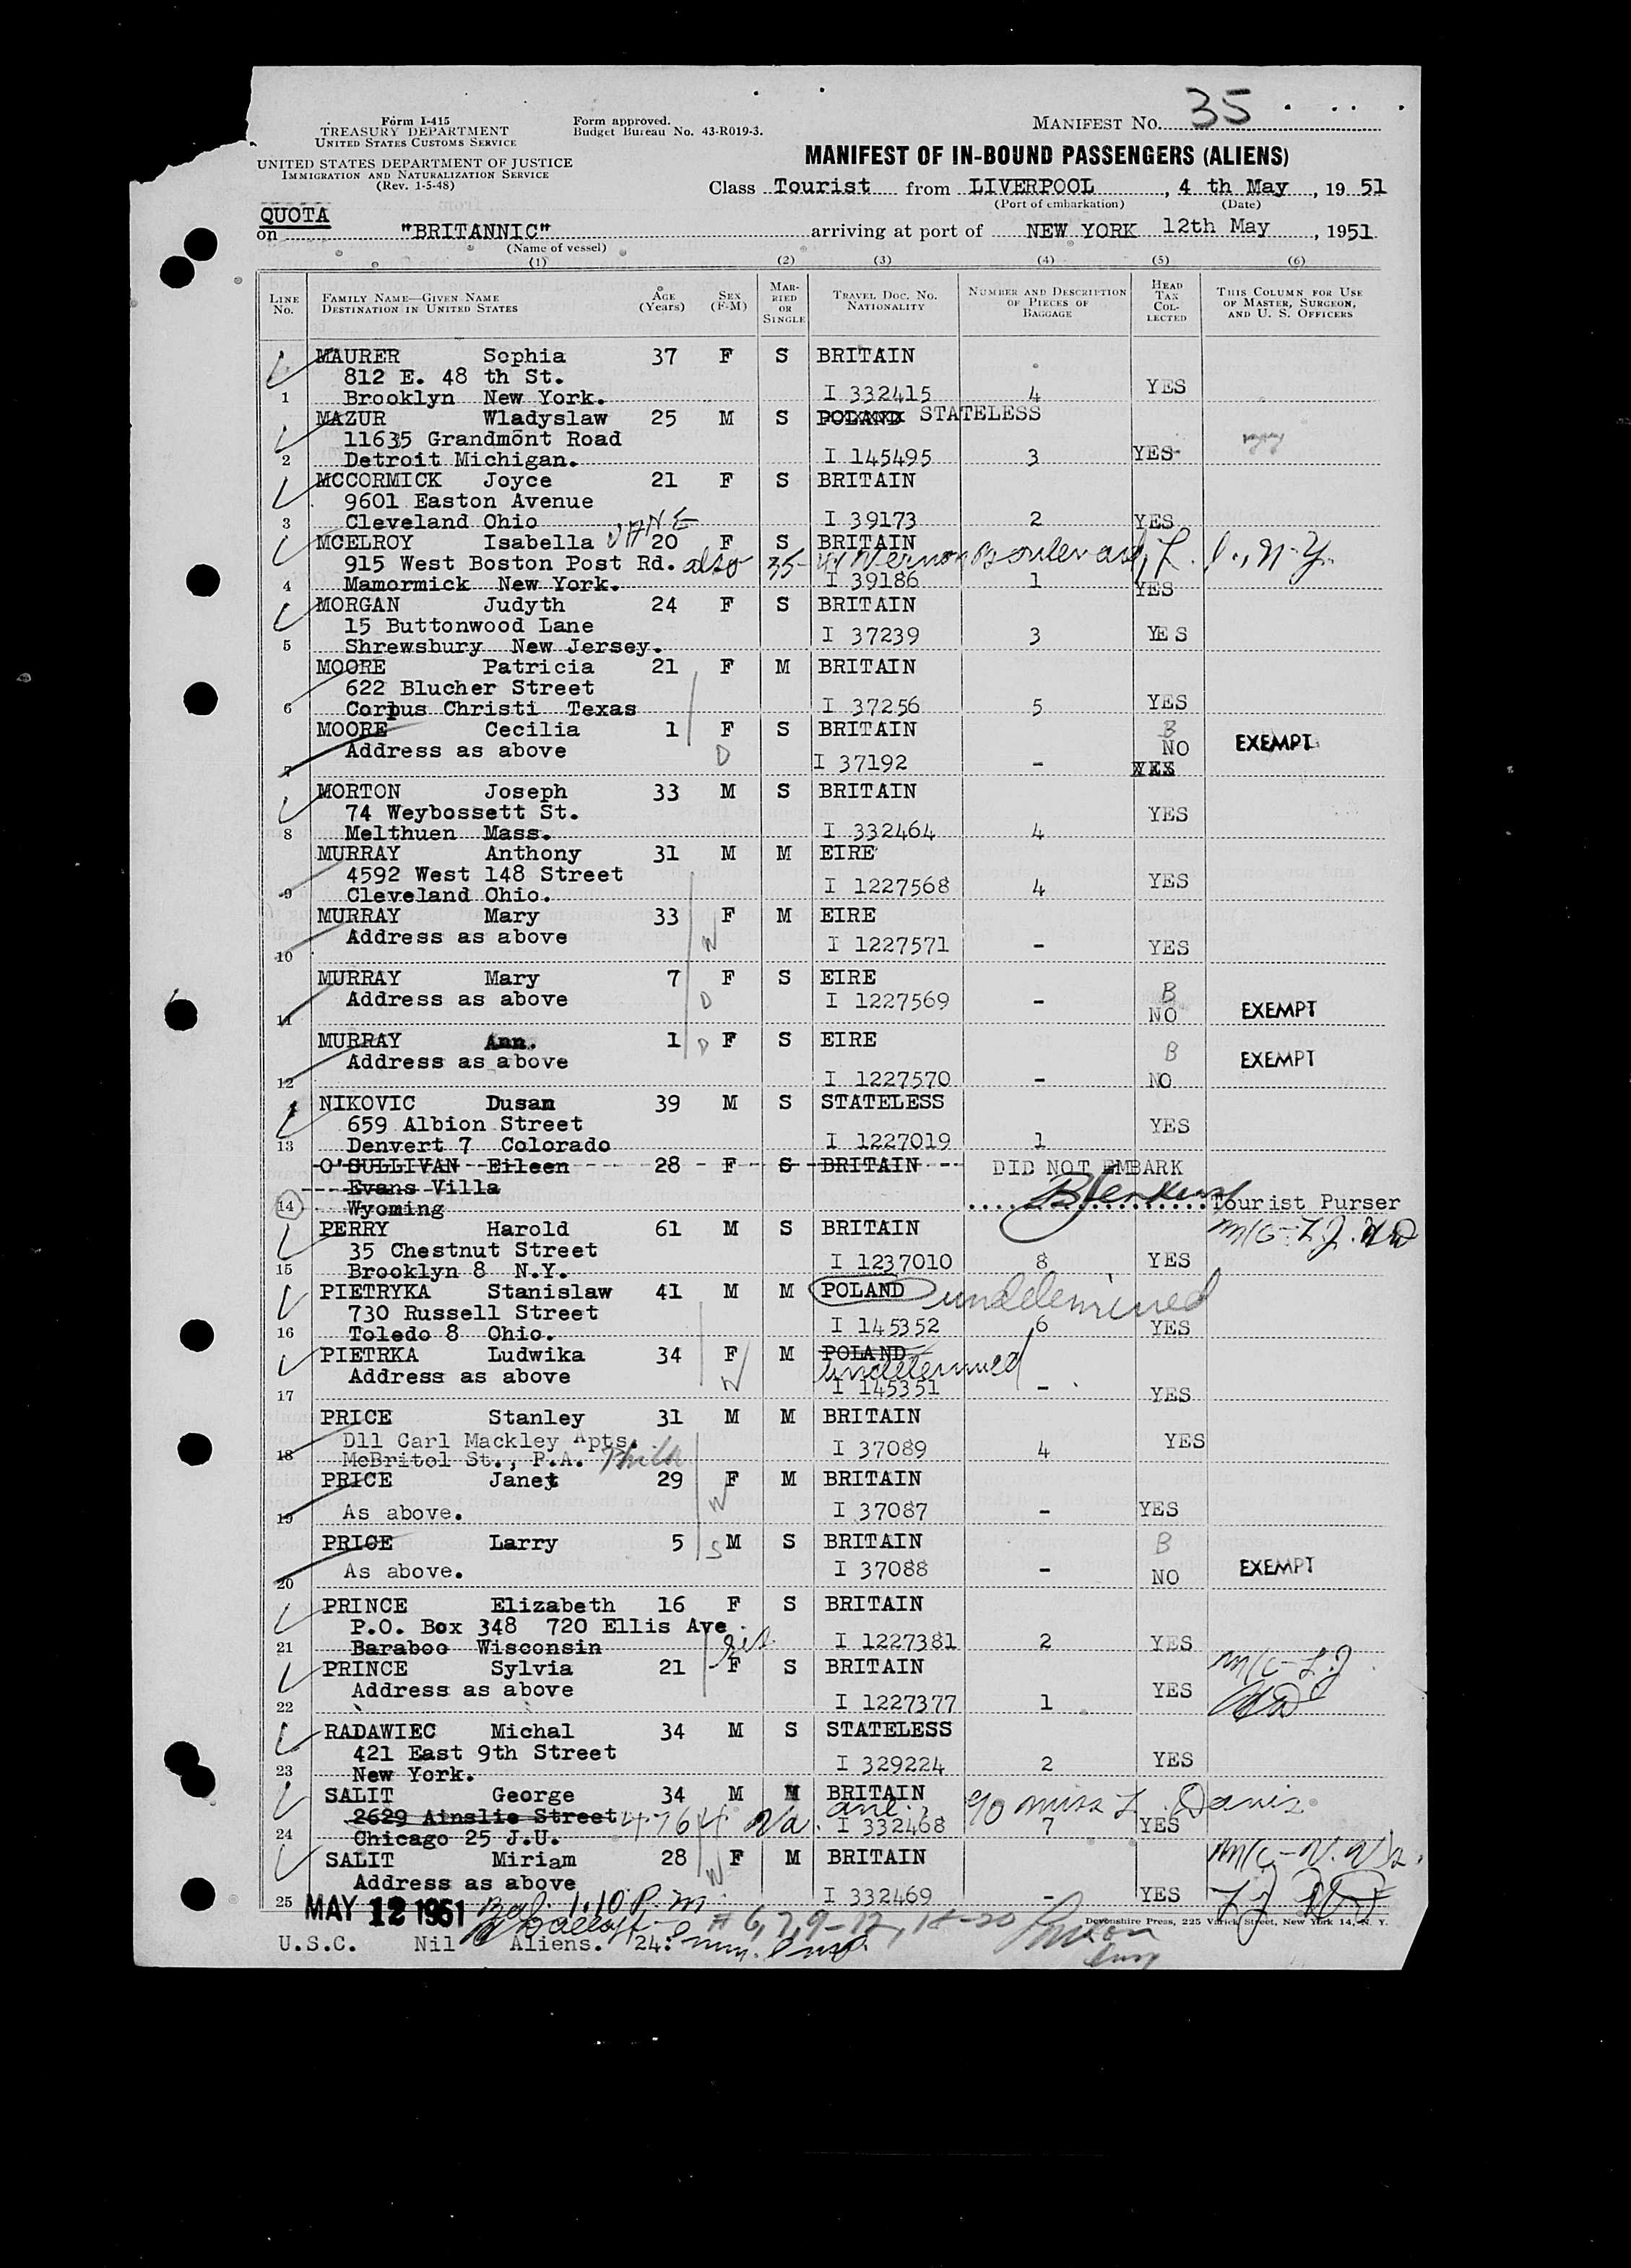 Form I-415
TREASURY DEPARTMENT
UNITED STATES CUSTOMS SERVICE
UNITED STATES DEPARTMENT OF JUSTICE
IMMIGRATION AND NATURALIZATION SERVICE
(Rev. 1-5-48)
Form approved.
Budget Bureau No. 43-R019-3.
MANIFEST No. 35
MANIFEST OF IN-BOUND PASSENGERS (ALIENS)
Class Tourist from LIVERPOOL, 4 th May, 19 51
(Port of embarkation) (Date)
QUOTA
on "BRITANNIC" arriving at port of NEW YORK 12th May, 1951
(Name of vessel)
(1) (2) (3) (4) (5) (6)
LINE No. FAMILY NAME—GIVEN NAME DESTINATION IN UNITED STATES AGE (Years) SEX (F-M) MARRIED OR SINGLE TRAVEL DOC. No. NATIONALITY NUMBER AND DESCRIPTION OF PIECES OF BAGGAGE HEAD TAX COLLECTED THIS COLUMN FOR USE OF MASTER, SURGEON, AND U. S. OFFICERS
MAURER Sophia 37 F S BRITAIN
812 E. 48 th St. YES
1 Brooklyn New York. I 332415 4
MAZUR Wladyslaw 25 M S POLAND STATELESS
11635 Grandmont Road
2 Detroit Michigan. I 145495 3 YES
MCCORMICK Joyce 21 F S BRITAIN
9601 Easton Avenue
3 Cleveland Ohio I 39173 2 YES
MCELROY Isabella JANE 20 F S BRITAIN
915 West Boston Post Rd. also 35- Vernon Boulevard, L. I., N.Y.
4 Mamormick New York. I 39186 1 YES
MORGAN Judyth 24 F S BRITAIN
15 Buttonwood Lane I 37239 3 YES
5 Shrewsbury New Jersey.
MOORE Patricia 21 F M BRITAIN
622 Blucher Street
6 Corpus Christi Texas I 37256 5 YES
MOORE Cecilia 1 F S BRITAIN B
Address as above D NO EXEMPT
7 I 37192 - YES
MORTON Joseph 33 M S BRITAIN
74 Weybossett St. YES
8 Melthuen Mass. I 332464 4
MURRAY Anthony 31 M M EIRE
4592 West 148 Street I 1227568 4 YES
9 Cleveland Ohio.
MURRAY Mary 33 F M EIRE
Address as above W I 1227571 - YES
10
MURRAY Mary 7 F S EIRE B
Address as above D I 1227569 - NO EXEMPT
11
MURRAY Ann. 1 D F S EIRE B
Address as above EXEMPT
12 I 1227570 - NO
NIKOVIC Dusan 39 M S STATELESS
659 Albion Street YES
13 Denvert 7 Colorado I 1227019 1
O'SULLIVAN Eileen 28 F S BRITAIN DID NOT EMBARK
Evans Villa
14 Wyoming Tourist Purser
PERRY Harold 61 M S BRITAIN
35 Chestnut Street I 1237010 8 YES
15 Brooklyn 8 N.Y.
PIETRYKA Stanislaw 41 M M POLAND undetermined
730 Russell Street
16 Toledo 8 Ohio. I 145352 6 YES
PIETRKA Ludwika 34 F M POLAND
Address as above W undetermined
17 I 145351 - YES
PRICE Stanley 31 M M BRITAIN
D11 Carl Mackley Apts. I 37089 4 YES
18 McBritol St., P.A. Phila
PRICE Janet 29 F M BRITAIN
19 As above. W I 37087 - YES
PRICE Larry 5 S M S BRITAIN B
As above. I 37088 - NO EXEMPT
20
PRINCE Elizabeth 16 F S BRITAIN
P.O. Box 348 720 Ellis Ave.
21 Baraboo Wisconsin sis I 1227381 2 YES
PRINCE Sylvia 21 F S BRITAIN
Address as above YES
22 I 1227377 1
RADAWIEC Michal 34 M S STATELESS
421 East 9th Street I 329224 2 YES
23 New York.
SALIT George 34 M M BRITAIN c/o Miss L. Davis
2629 Ainslie Street 4764 I 332468 7 YES
24 Chicago 25 J.U.
SALIT Miriam 28 W F M BRITAIN
Address as above
25 I 332469 - YES
MAY 12 1951 1.10 P.m
# 6, 7, 9-12, 18-20
Devonshire Press, 225 Varick Street, New York 14, N. Y.
U.S.C. Nil Aliens. 24.